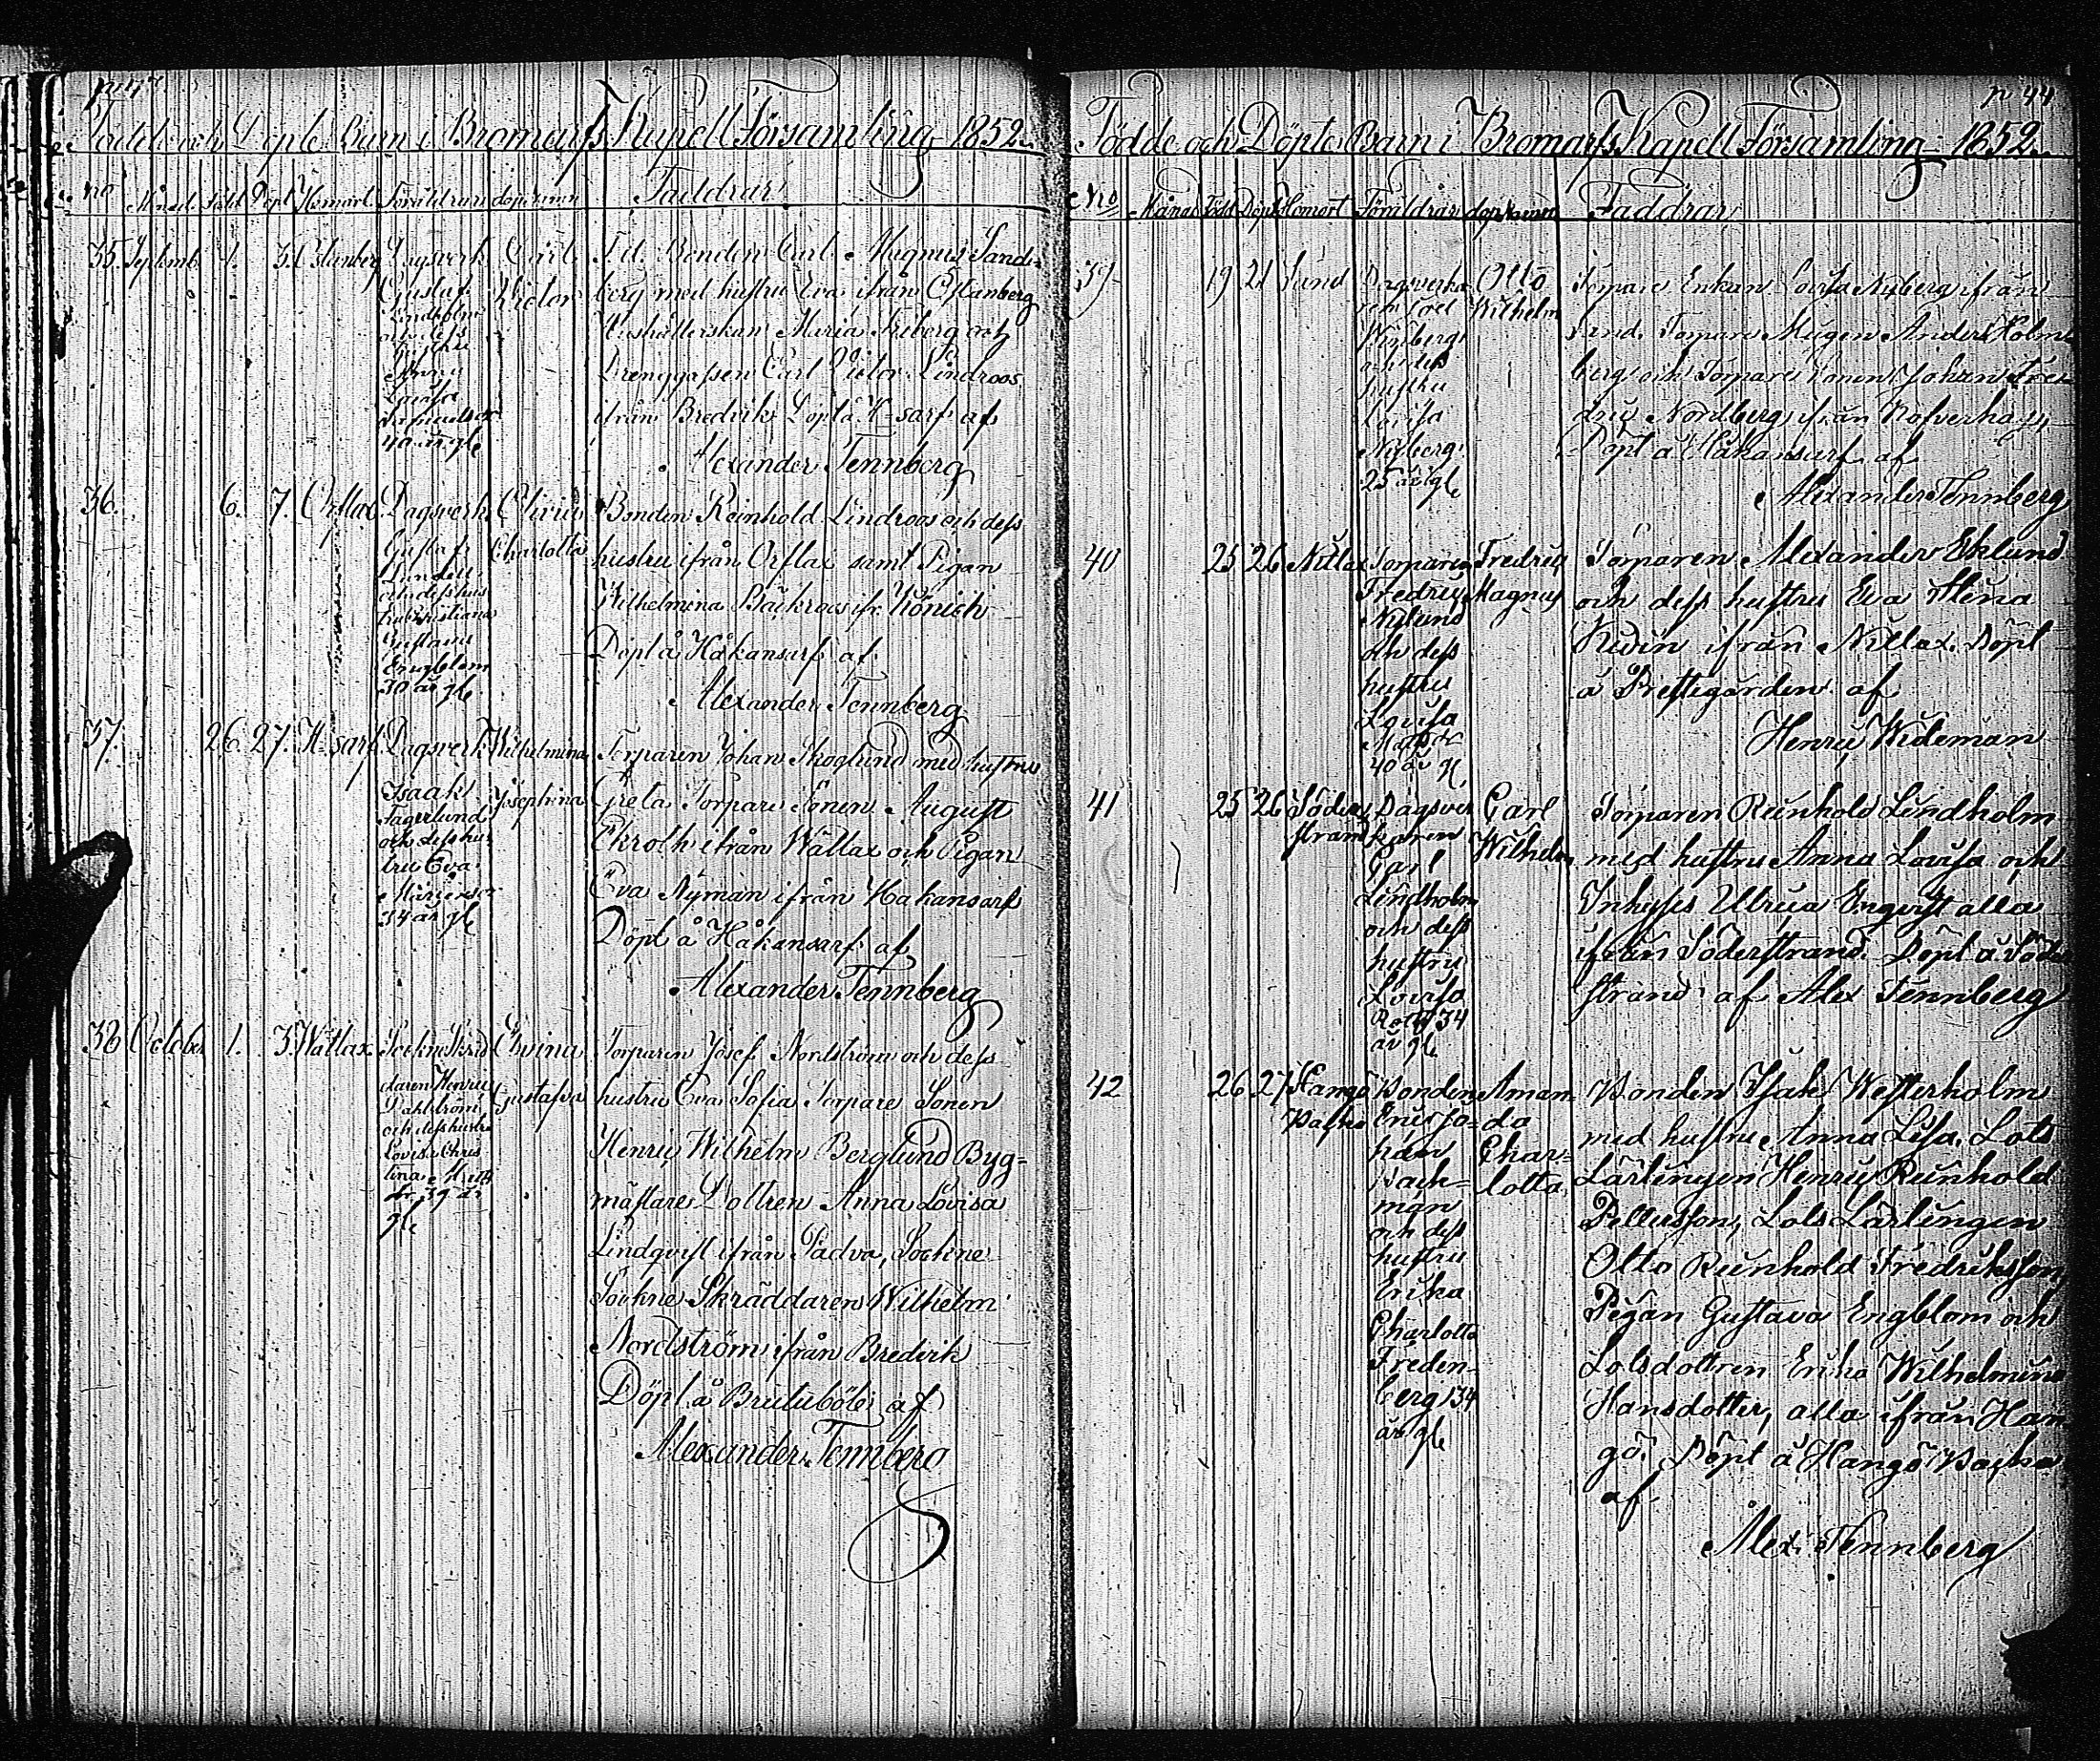 Födde och Döpte Barn i Bromarfs Kapell Församling 1852.
No Månad Född Döpt Hemort Föräldrar dopnamn Faddrar
35. Septemb. 1. 3.
Dagsverk.
Gustaf
Lindholm
och dess
hustru
Anna
Lovisa
40 år gl
Carl
Victor
Bonden Carl Magnus Sand-
berg med hustru Eva ifrån
Hushållerskan Maria Friberg och
Drenggossen Carl Victor Lindroos
ifrån Bredvik Döpt å H-sarf af
Alexander Tennberg
36. 6. 7.
Dagsverk.
Gustaf
och dess hus
tru Christiana
Gustava
Engblom
30 år gl
Charlotta
Bonden Reinhold Lindroos och dess
hustru ifrån samt Pigan
Wilhelmina Bäckroos ifr. Könich
Döpt å Håkansarf af
Alexander Tennberg
37. 26. 27. H-sarf
Dagsverk.
Isaak
Fagerlund
och dess hus
tru Eva
34 år gl
Wilhelmina
Josephina
Torparen Johan Skoglund med hustru
Greta Torpare Sonen August
Ekroth ifrån Wättlax och Pigan
Eva Nyman ifrån Håkansarf
Döpt å Håkansarf af
Alexander Tennberg
38 October 1. 3. Wättlax
Sockne Skräd
daren Henric
Dahlström
och dess hustru
Lovisa Chris
tina
39 år
gl
Gustafva
Torparen Josef Nordström och dess
hustru Eva Sofia Torpare Sonen
Henric Wilhelm Berglund Byg-
mästare Dottren Anna Lovisa
Lindqvist ifrån Padva, Sockne
Sockne Skräddaren Wilhelm
Nordström ifrån Bredvik
Döpt å af
Alexander Tennberg
p 44
Födde och Döpte Barn i Bromarfs Kapell Församling 1852.
No Månad Född Döpt Hemort Föräldrar dopnamn Faddrar
39. 19 21
Dagsverka
ren
och dess
hustru
Lovisa
Nyberg
25 år gl
Otto
Wilhelm
Torpare Enkan Lovisa Nyberg ifrån
Torpare Mågen Anders Holm-
berg och Torpare Sonen Johan
Nordberg ifrån
Döpt å Håkansarf af
Alexander Tennberg
40 25 26 Nitlax
Torparen
Fredric
Nylund
och dess
hustru
Lovisa
40 år gl
Fredric
Magnus
Torparen Alexander Eklund
och dess hustru Eva Stina
ifrån Nitlax. Döpt
å Prestegården af
Henric Wideman
41 25 26 Söder
strand
Dagsver
karen
Carl
Lindholm
och dess
hustru
Lovisa
34
år gl
Carl
Wilhelm
Torparen Reinhold Lindholm
med hustru Anna Lovisa och
Inhyses Ulrica Engqvist alla
ifrån Söderstrand. Döpt å Söder
strand af Alex Tennberg
42 26 27 Hangö
Bonden
Eric Jo-
han
Back-
man
och dess
hustru
Erika
Charlotta
Freden-
berg 34
år gl
Aman
da
Char-
lotta
Bonden Isak Westerholm
med hustru Anna Lisa. Lots
Lärlingen Henric Reinhold
Pettersson, Lots Lärlingen
Otto Reinhold Fredriksson,
Pigan Gustava Engblom och
Lotsdottren Erika Wilhelmina
Hansdotter, alla ifrån Han
gö. Döpt å Hangö
af
Alex. Tennberg